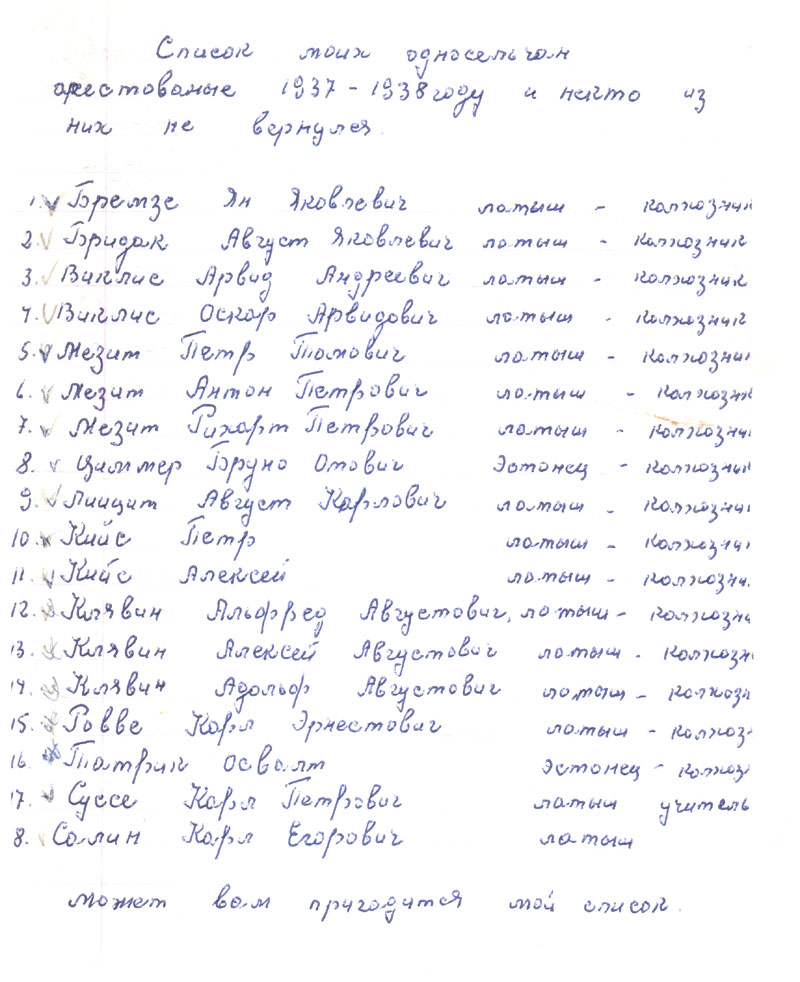 Список моих односельчан
арестованые 1937-1938 году и никто из
них не вернулся.
1. Бремзе Ян Яковлевич латыш - колхозник
2. Бридак Август Яковлевич латыш - колхозник
3. Виклис Арвид Андреевич латыш - колхозник
4. Виклис Оскар Арвидович латыш - колхозник
5. Мезит Петр Томович латыш - колхозник
6. Мезит Антон Петрович латыш - колхозник
7. Мезит Рихарт Петрович латыш - колхозни
8. Циммер Бруно Отович Эстонец - колхозник
9. Август Карлович латыш - колхозни
10. Кийс Петр латыш - колхозни
11. Кийс Алексей латыш - колхозни
12. Клявин Альфред Августович, латыш - колхозни
13. Клявин Алексей Августович латыш - колхозн
14. Клявин Адольф Августович латыш - колхозн
15. Ровве Карл Эрнестович латыш - колхоз
16. Патрик Освалт Эстонец - колхоз
17. Суссе Карл Петрович латыш учитель
8. Салин Карл Егорович латыш
может вам пригодится мой список.